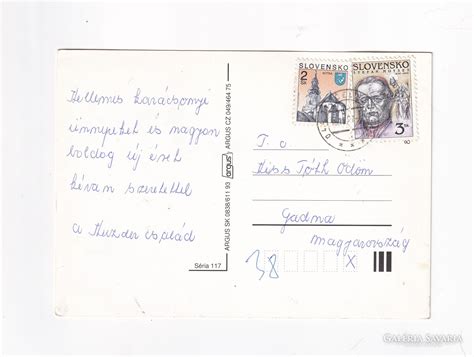 Kellemes karácsonyi
ünnepeket és nagyon
boldog új évet
kíván szeretettel
a Huzder család
Séria 117
ARGUS SK 0838/611 93
argus
ARGUS CZ 049/464 75
SLOVENSKO
2
Sk
NITRA
SLOVENSKO
ŠTEFAN MOYSES
3
Sk
T. c
Kiss Tóth Ödön
Gadna
Magyarország
38
X
GALÉRIA SAVARIA